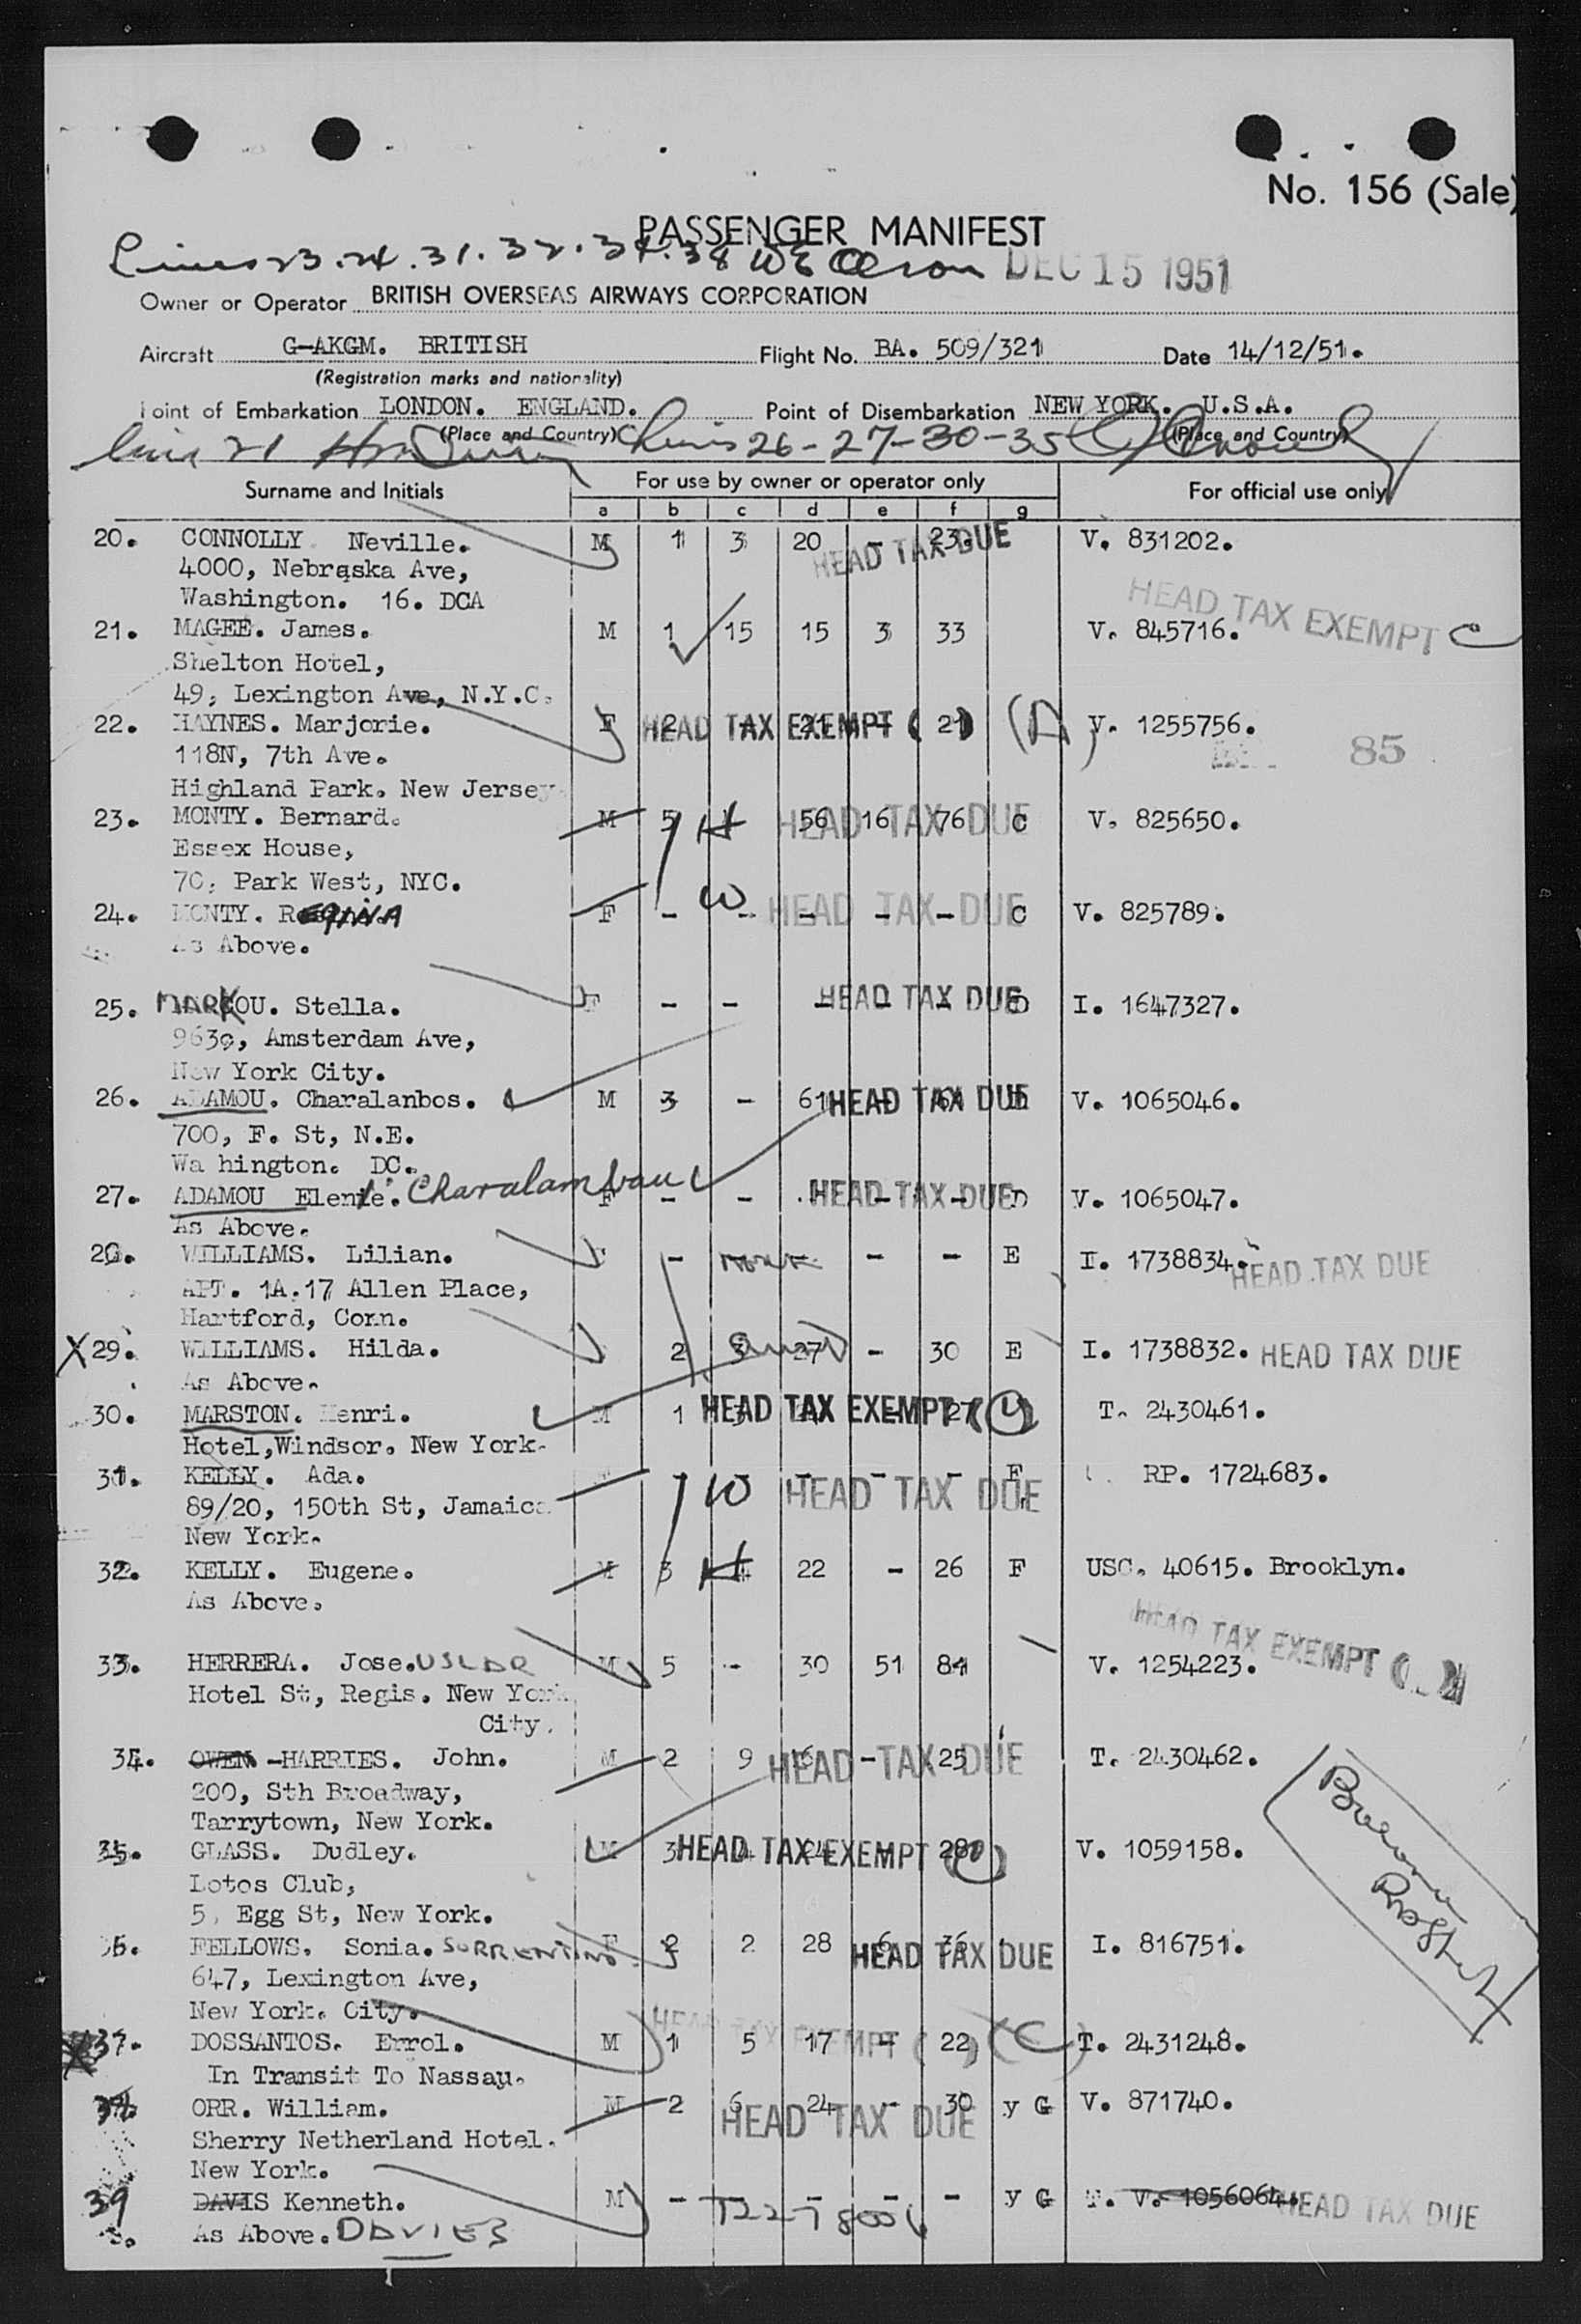 No. 156 (Sale)
PASSENGER MANIFEST
Lines 23. 24. 31. 32. 34. 38 DEC 15 1951
Owner or Operator BRITISH OVERSEAS AIRWAYS CORPORATION
Aircraft G-AKGM. BRITISH Flight No. BA. 509/321 Date 14/12/51.
(Registration marks and nationality)
Point of Embarkation LONDON. ENGLAND. Point of Disembarkation NEW YORK. U.S.A.
(Place and Country) (Place and Country)
Line 21 Lines 26-27-30-35
Surname and Initials For use by owner or operator only For official use only
a b c d e f g
20. CONNOLLY Neville. M 1 3 20 - 23. HEAD TAX DUE V. 831202.
4000, Nebraska Ave,
Washington. 16. DCA
HEAD TAX EXEMPT C
21. MAGEE. James. M 1 15 15 3 33 V. 845716.
Shelton Hotel,
49, Lexington Ave, N.Y.C.
22. HAYNES. Marjorie. F 2 - 21 - 21 HEAD TAX EXEMPT (A) V. 1255756.
118N, 7th Ave. 85
Highland Park. New Jersey
23. MONTY. Bernard. M 5 H 56 16 76 C HEAD TAX DUE V. 825650.
Essex House,
70, Park West, NYC.
24. MONTY. REGINA F - W - - - C HEAD TAX DUE V. 825789.
As Above.
25. MARKOU. Stella. F - - - - - D HEAD TAX DUE I. 1647327.
9630, Amsterdam Ave,
New York City.
26. ADAMOU. Charalanbos. M 3 - 61 - 64 D HEAD TAX DUE V. 1065046.
700, F. St, N.E.
Wa hington. DC.
27. ADAMOU Elenie. Charalambou F - - - - - D HEAD TAX DUE V. 1065047.
As Above.
28. WILLIAMS. Lilian. F - - - E I. 1738834. HEAD TAX DUE
APT. 1A.17 Allen Place,
Hartford, Conn.
X 29. WILLIAMS. Hilda. 2 3 27 - 30 E I. 1738832. HEAD TAX DUE
As Above.
30. MARSTON. Henri. M 1 3 - 27 HEAD TAX EXEMPT T. 2430461.
Hotel,Windsor. New York.
31. KELLY. Ada. W - - - F HEAD TAX DUE RP. 1724683.
89/20, 150th St, Jamaica
New York.
32. KELLY. Eugene. M 3 H 22 - 26 F USC. 40615. Brooklyn.
As Above.
HEAD TAX EXEMPT
33. HERRERA. Jose. USLAR M 5 - 30 51 84 V. 1254223.
Hotel St, Regis. New York
City.
34. OWEN -HARRIES. John. M 2 9 16 - 25 HEAD TAX DUE T. 2430462.
200, Sth Broadway,
Tarrytown, New York.
35. GLASS. Dudley. M 3 4 24 - 28 HEAD TAX EXEMPT V. 1059158.
Lotos Club,
5, Egg St, New York.
36. FELLOWS. Sonia. SORRENTINO F 2 2 28 6 36 HEAD TAX DUE I. 816751.
647, Lexington Ave,
New York. City.
37. DOSSANTOS. Errol. M 1 5 17 - 22 HEAD TAX EXEMPT (C) T. 2431248.
In Transit To Nassau.
38. ORR. William. M 2 6 24 - 30 y G HEAD TAX DUE V. 871740.
Sherry Netherland Hotel.
New York.
39 DAVIS Kenneth. M - - - - - y G T. V. 1056064. HEAD TAX DUE
As Above. DAVIES